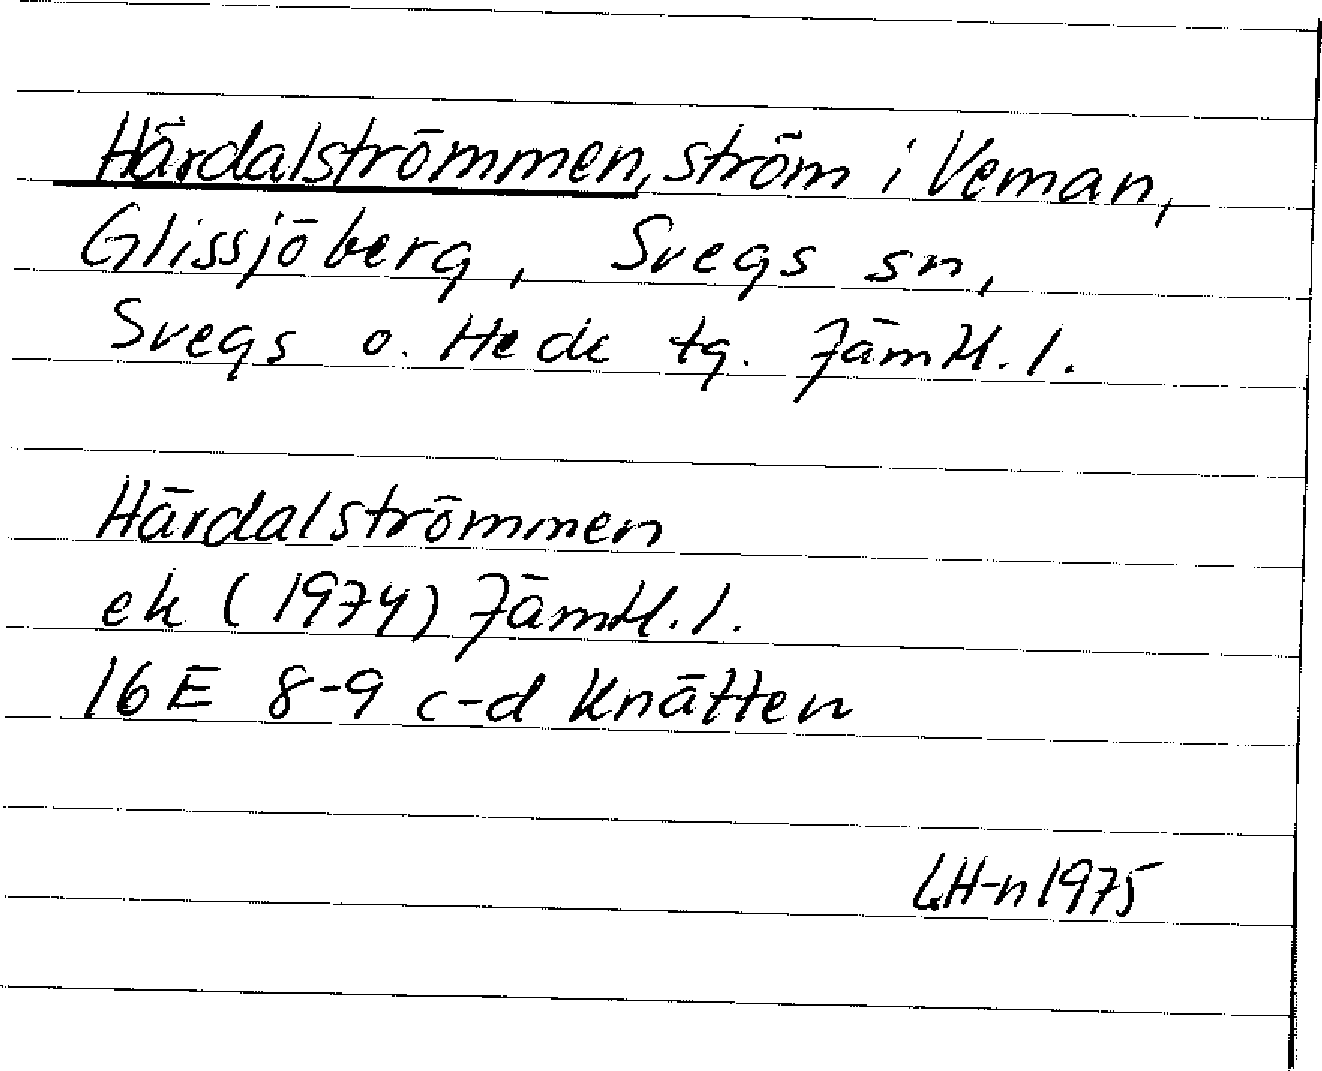 Härdalströmmen, ström i Veman,
Glissjöberg, Svegs sn,
Svegs o. Hede tg. Jämtl. l.
Härdalströmmen
ek (1974) Jämtl. l.
16E 8-9 c-d Knätten
LH-n 1975